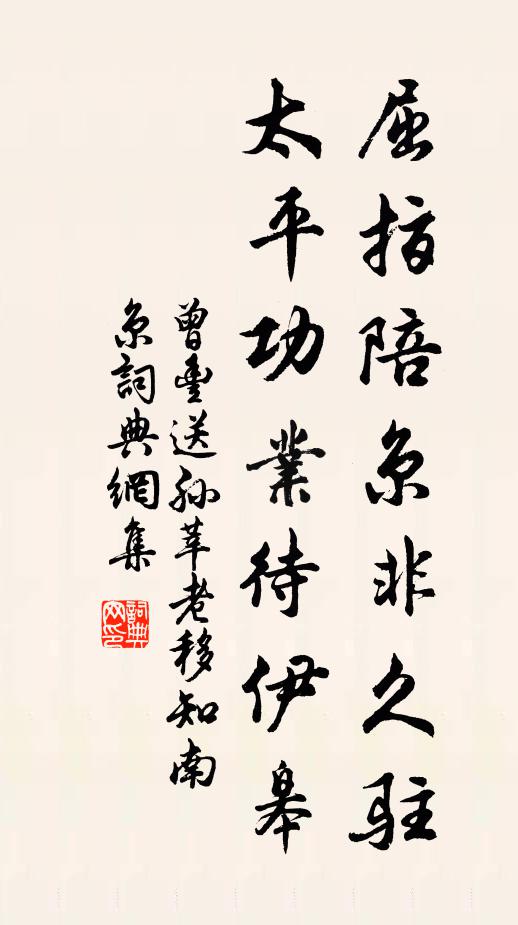 屈指陪京非久駐
太平功業待伊皋
曾豐送孫莘老移知南
京詞典網集
詞典網印